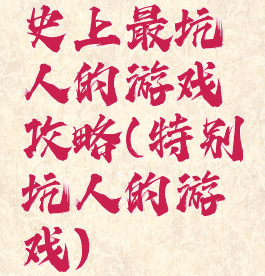 史上最坑
人的游戏
攻略(特别
坑人的游
戏)